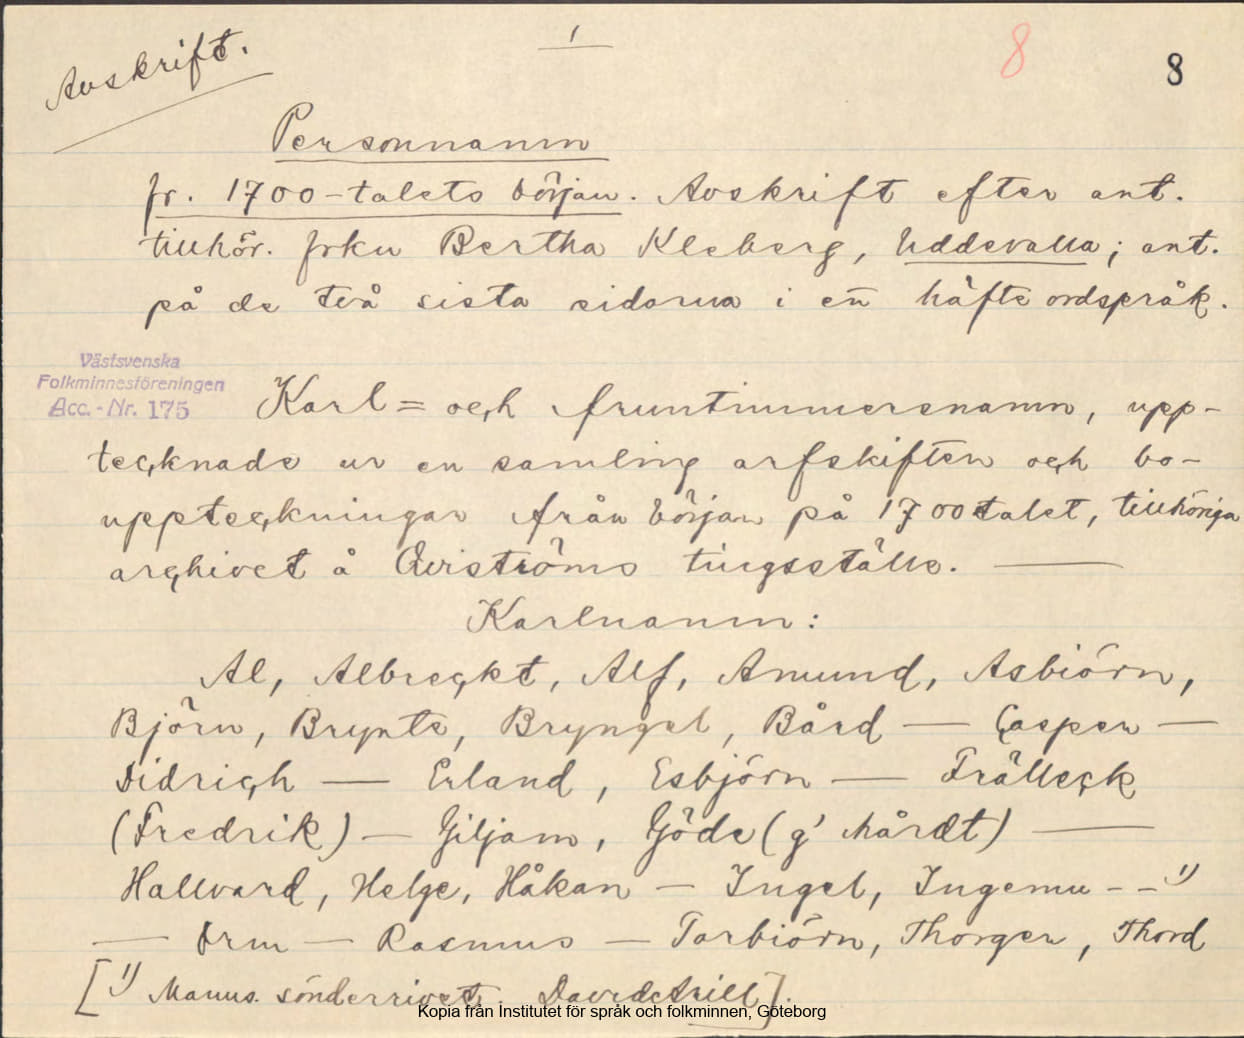 Avskrift.
1
8
8
Personnamn
fr. 1700-talets början. Avskrift efter ant.
tillhör. frkn Bertha Kleberg, Uddevalla; ant.
på de två sista sidorna i en häfte ordspråk.
Västsvenska
Folkminnesföreningen
Acc.-Nr. 175
Karl= och fruntimmersnamn, upp-
tecknade ur en samling arfskiften och bo-
uppteckningar från början på 1700talet, tillhöriga
archivet å Qviströms tingsställe. —
Karlnamn:
Al, Albreckt, Alf, Amund, Asbiörn,
Björn, Brynte, Bryngel, Bård — Casper —
Didrich — Erland, Esbjörn — Frälleck
(Fredrik) — Giljam, Göde (g' hårdt) —
Hallvard, Helge, Håkan — Ingel, Ingemu - - 1)
— Orm — Rasmus — Torbiörn, Thorger, Thord
[1) Manus. sönderrivet.
Kopia från Institutet för språk och folkminnen, Göteborg